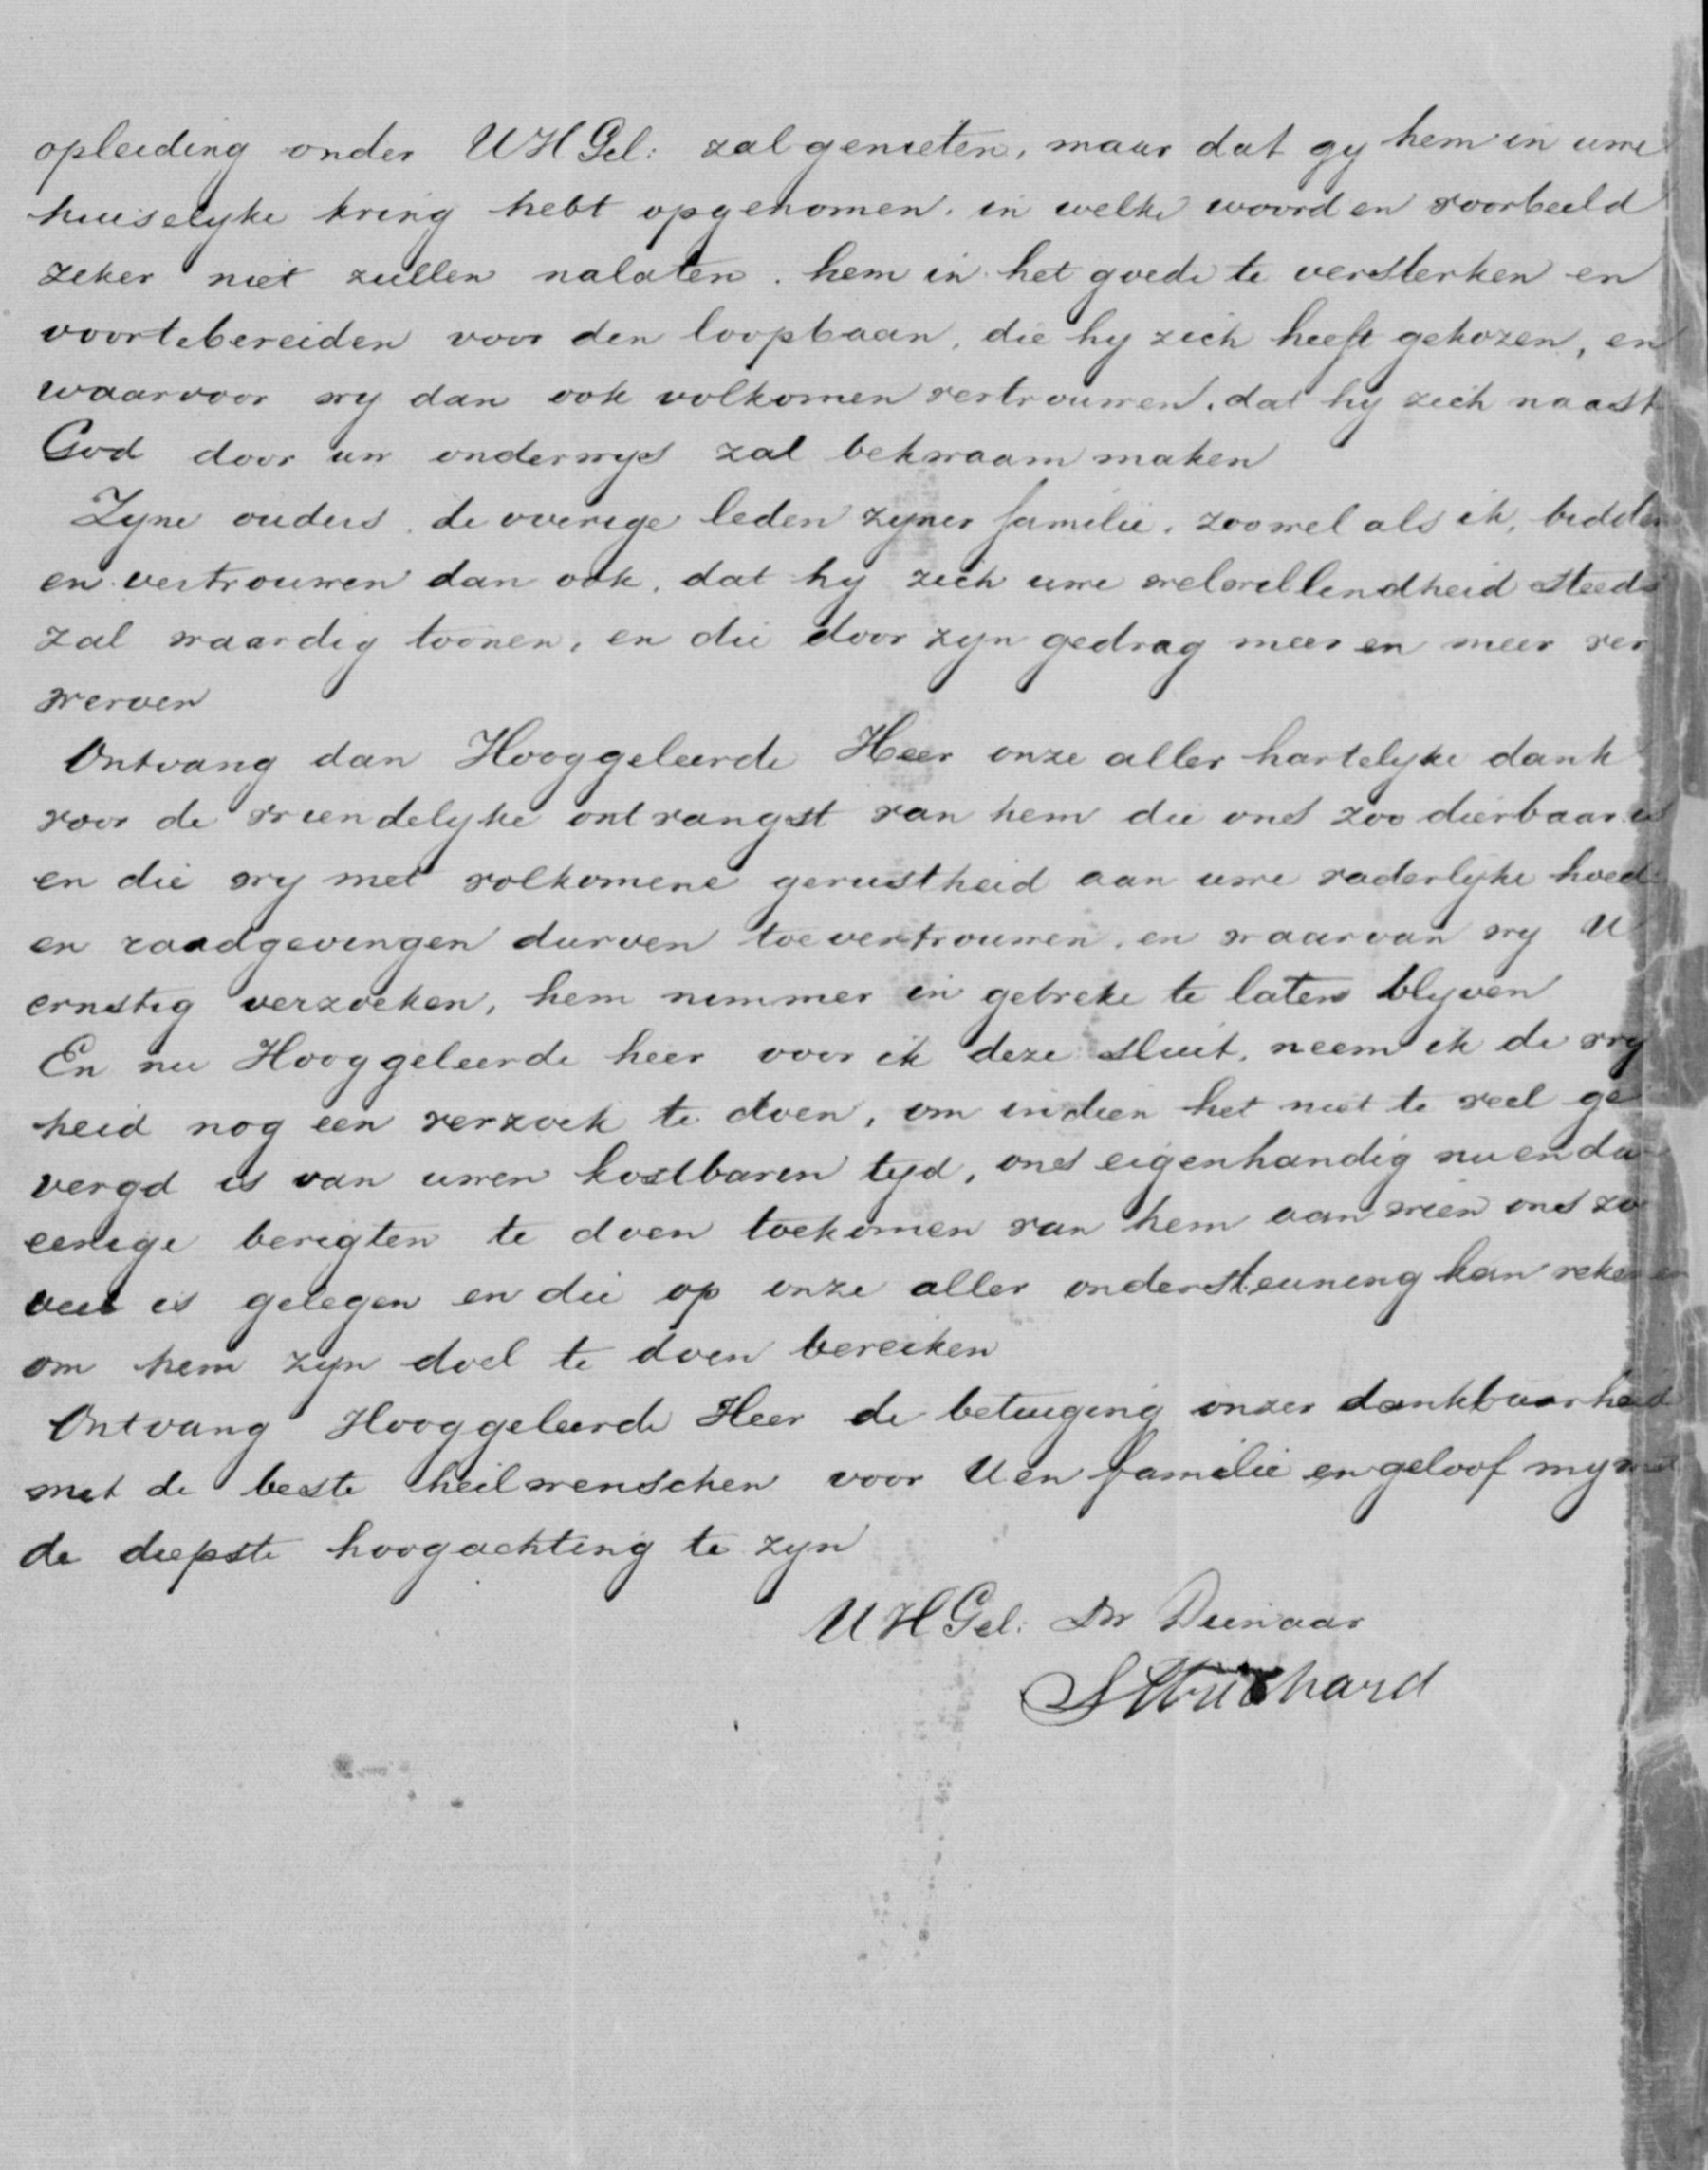 opleiding onder UHGel: zal genieten, maar dat gy hem in uwe
huiselyke kring hebt opgenomen. in welke woord en voorbeeld
zeker niet zullen nalaten. hem in het goede te versterken en
voortebereiden voor den loopbaan, die hy zich heeft gekozen, en
waarvoor wy dan ook volkomen vertrouwen, dat hy zich naast
God door uw onderwys zal bekwaam maken
Zyne ouders, de overige leden zyner familie, zoowel als ik, bidden
en vertrouwen dan ook, dat hy zich uwe welwillendheid steeds
zal waardig toonen, en die door zyn gedrag meer en meer ver
werven
Ontvang dan Hooggeleerde Heer onze aller hartelyke dank
voor de vriendelyke ontvangst van hem die ons zoo dierbaar is
en die wy met volkomene gerustheid aan uwe vaderlyke hoed
en raadgevingen durven toevertrouwen, en waarvan wy U
ernstig verzoeken, hem nimmer in gebreke te laten blyven
En nu Hooggeleerde heer voor ik deze sluit, neem ik de vry
heid nog een verzoek te doen, om indien het niet te veel ge
vergd is van uwen kostbaren tyd, ons eigenhandig nu en da
eenige berigten te doen toekomen van hem aan wien ons zo
veel is gelegen en die op onze aller ondersteuning kan rekenen
om hem zyn doel te doen bereiken
Ontvang Hooggeleerde Heer de betuiging onzer dankbaarheid
met de beste heilwenschen voor U en familie en geloof my met
de diepste hoogachting te zyn
UHGel: Dw Dienaar